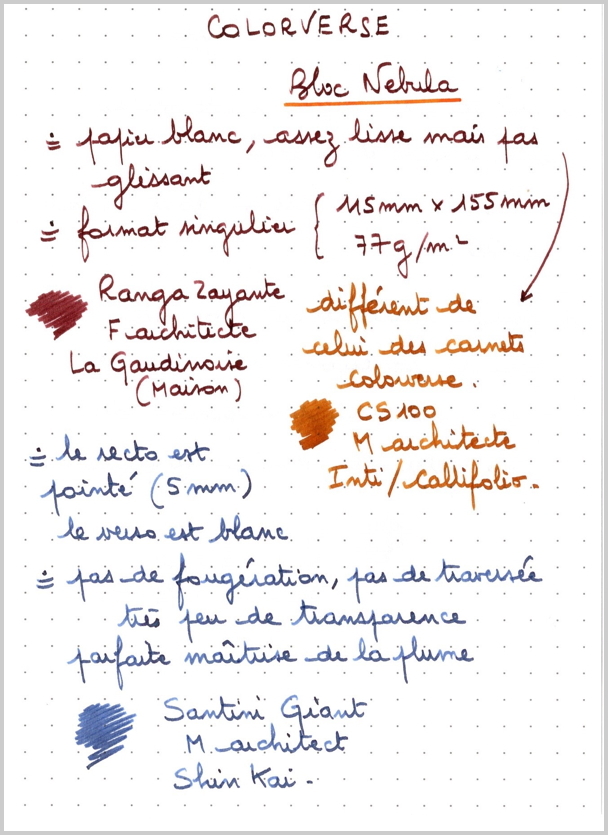 COLORVERSE
Bloc Nebula
÷ papier blanc, assez lisse mais pas
glissant
÷ format singulier { 115mm x 155mm
77g/m²
Ranga Zayante
F architecte
La Gaudinoise
(Maison)
différent de
celui des carnets
colorverse.
CS 100
M architecte
Inti / Callifolio.
÷ le recto est
pointé (5 mm)
le verso est blanc
÷ pas de fougération, pas de traversée
très peu de transparence
parfaite maîtrise de la plume
Santini Giant
M architect
Shin Kai.